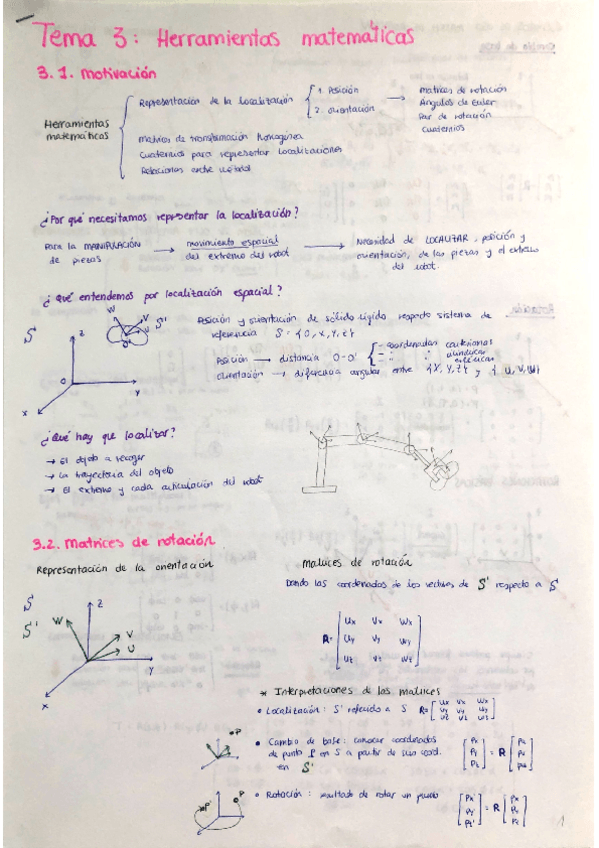 Tema 3: Herramientas matemáticas
3.1. Motivación
Herramientas matemáticas
Representación de la localización
1. Posición
2. orientación
matrices de rotación
Ángulos de Euler
Par de rotación
cuaternios
Matrices de transformación homogénea
Cuaternios para representar localizaciones
Relaciones entre
¿Por qué necesitamos representar la localización?
Para la MANIPULACIÓN de piezas
movimiento espacial del extremo del robot
Necesidad de LOCALIZAR, posición y
orientación, de las piezas y el extremo
del robot.
¿Qué entendemos por localización espacial?
S
z
O
x
y
W
V
U
S'
Posición y orientación de sólido rígido respecto sistema de
referencia S = {O, X, Y, Z}
Posición → distancia O-O'
- coordenadas cartesianas
- " " cilíndricas
- " " esféricas
orientación → diferencia angular entre {X, Y, Z} y {U, V, W}
¿Qué hay que localizar?
→ El objeto a recoger
→ La trayectoria del objeto
→ El extremo y cada articulación del robot
3.2. Matrices de rotación
Representación de la orientación
S
S'
Z
W
V
U
Y
X
Matrices de rotación
Donde las coordenadas de los vectores de S' respecto a S
R= [ux vx wx
uy vy wy
uz vz wz]
* Interpretaciones de las matrices
• Localización: S' referido a S R= [ux vx wx
uy vy wy
uz vz wz]
• Cambio de base: conocer coordenadas
de punto P en S a partir de sus coord.
en S'
P
[Px
Py
Pz] = R [Pu
Pv
Pw]
• Rotación: resultado de rotar un punto
P'
P
[Px'
Py'
Pz'] = R [Px
Py
Pz]
1